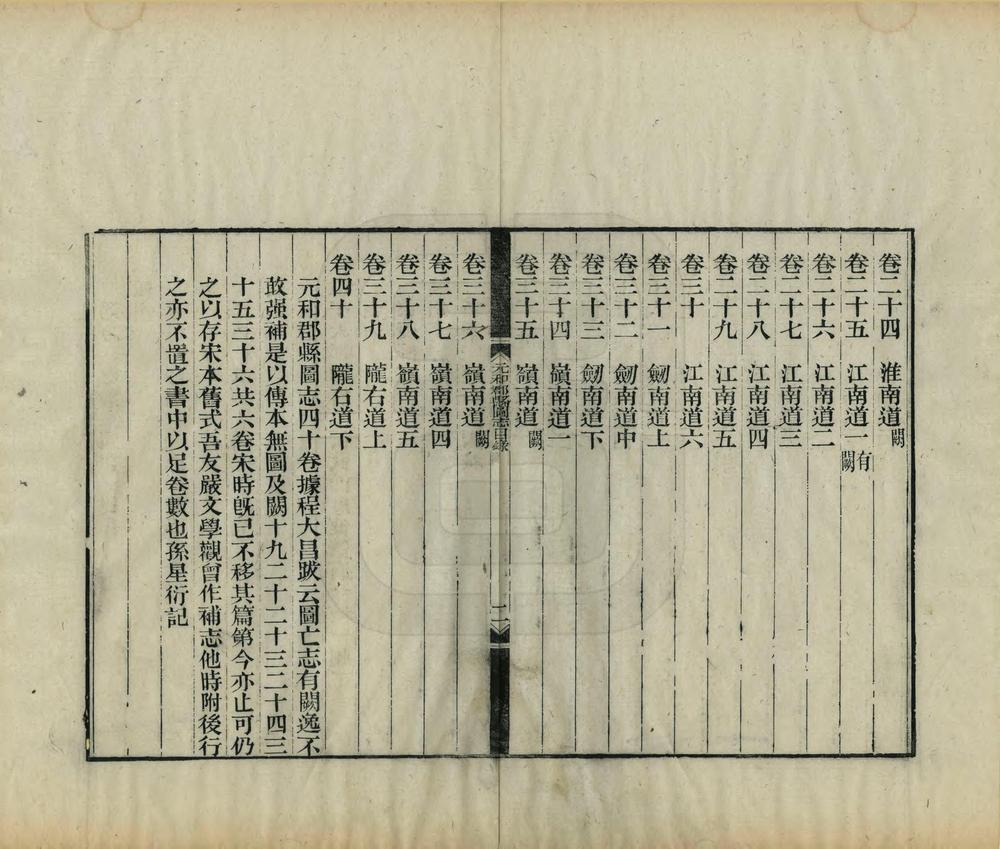 卷二十四 淮南道闕
卷二十五 江南道一有闕
卷二十六 江南道二
卷二十七 江南道三
卷二十八 江南道四
卷二十九 江南道五
卷三十 江南道六
卷三十一 劒南道上
卷三十二 劒南道中
卷三十三 劒南道下
卷三十四 嶺南道一
卷三十五 嶺南道闕
元和郡縣圖志目錄 二
卷三十六 嶺南道闕
卷三十七 嶺南道四
卷三十八 嶺南道五
卷三十九 隴右道上
卷四十 隴右道下
元和郡縣圖志四十卷據程大昌跋云圖亡志有闕逸不
敢强補是以傳本無圖及闕十九二十二十三二十四三
十五三十六共六卷宋時旣已不移其篇第今亦止可仍
之以存宋本舊式吾友嚴文學觀曾作補志他時附後行
之亦不置之書中以足卷數也孫星衍記